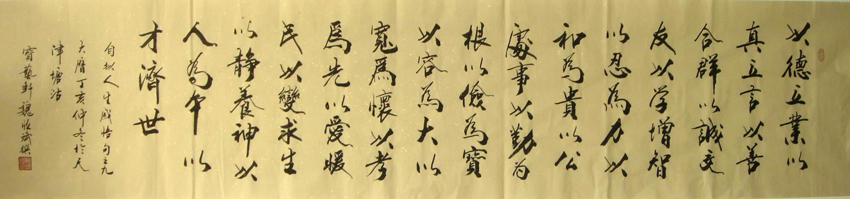 以德立業以
真立言以善
合群以誠交
友以学增智
以忍為力以
和為貴以公
處事以勤为
根以儉為寶
以容為大以
寬為懷以孝
爲先以愛暖
民以變求生
以静養神以
人為本以
才濟世
自拟人生感悟句之九
丁亥仲冬於天
津塘沽
軒魏